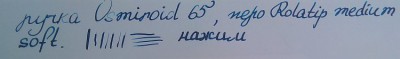 ручка Osmiroid 65, перо Rolatip medium
soft. нажим